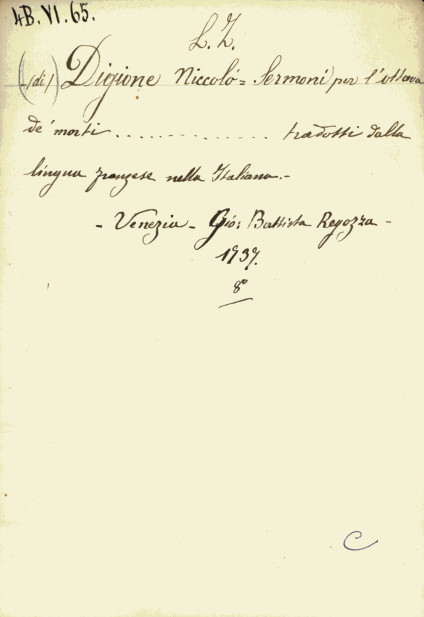 4B.VI.65.
L. Z.
(di) Digione Niccolò = Sermoni per l'ottava
de' morti .............. tradotti dalla
lingua franzese nella Italiana.-
- Venezia - Gio: Battista Regozza -
1737.
8°
C